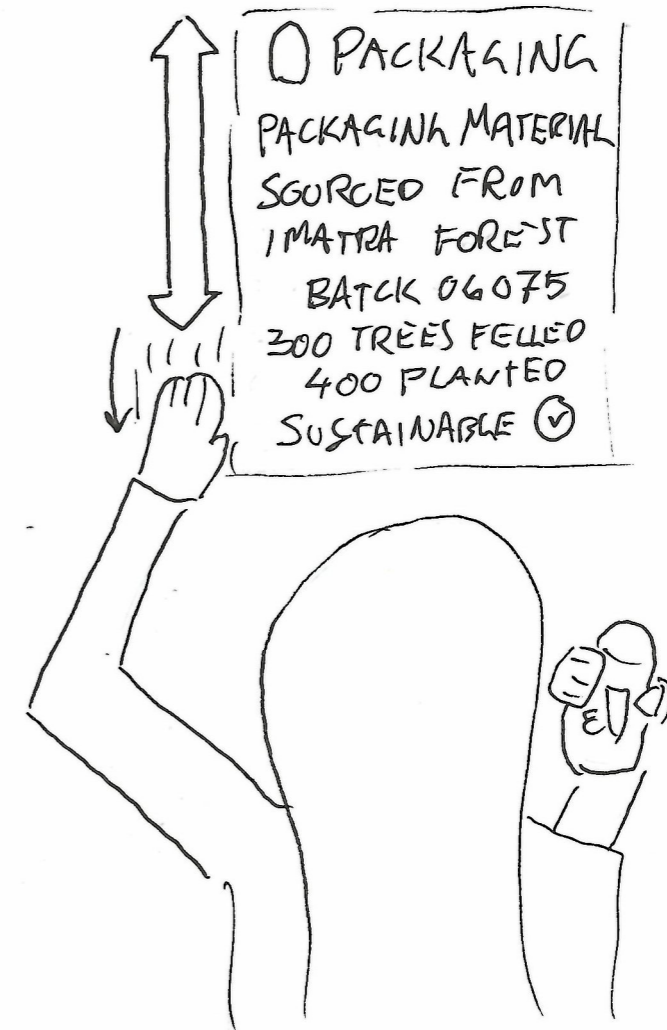 PACKAGING
PACKAGING MATERIAL
SOURCED FROM
IMATRA FOREST
BATCK 06075
300 TREES FELLED
400 PLANTED
SUSTAINABLE